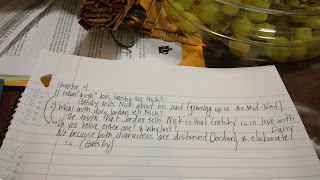 Chapter 4
1) What "truth" does Gatsby tell Nick?
Gatsby tells Nick about his past (growing up in the Mid-West)
2) What truth does Jordan tell Nick?
The truth that Jordan tells Nick is that Gatsby is in love with Daisy
Do you belive either one? & Why/not?
No because both characters are dishonest (Jordan) & elaborate
is (Gatsby)